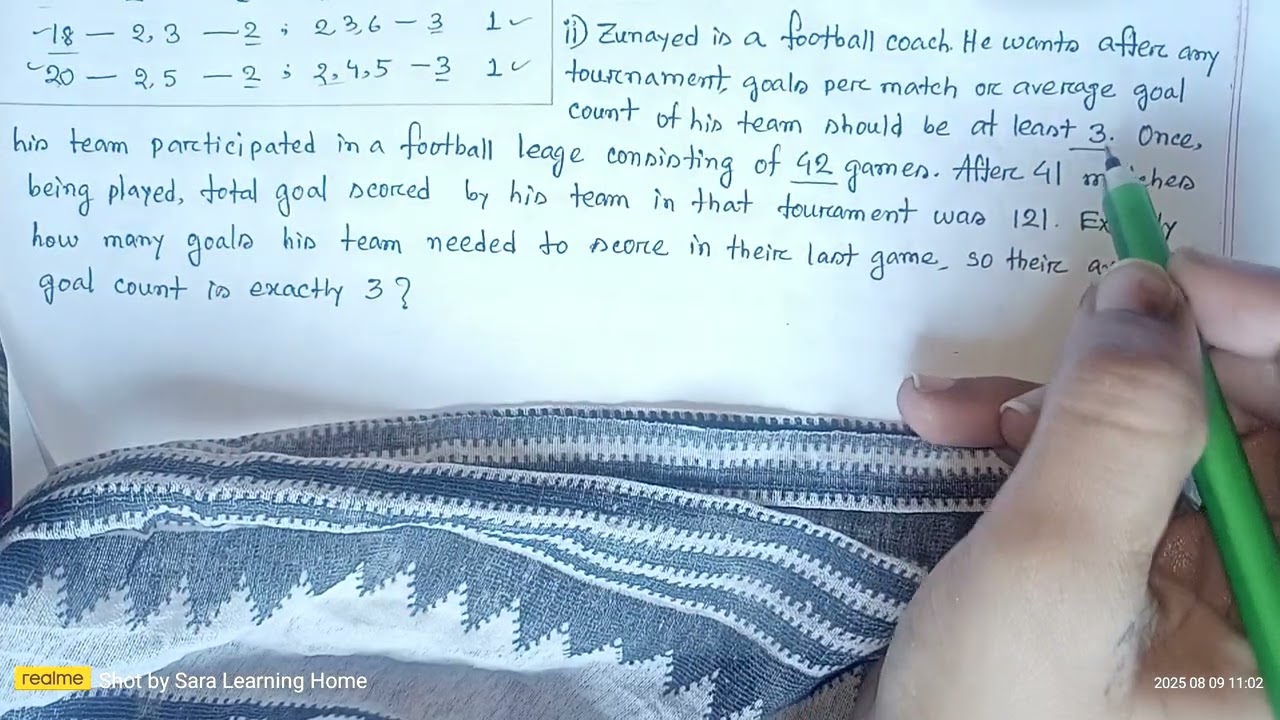 18 — 2, 3 — 2 ; 2 3, 6 — 3 1 ✓
20 — 2, 5 — 2 ; 2, 4, 5 — 3 1 ✓
ii) Zunayed is a football coach. He wants after any
tournament, goals per match or average goal
count of his team should be at least 3. Once,
his team participated in a football leage consisting of 42 games. After 41
being played, total goal scored by his team in that tourament was 121.
how many goals his team needed to score in their last game, so their
goal count is exactly 3?
realme Shot by Sara Learning Home
2025 08 09 11:02